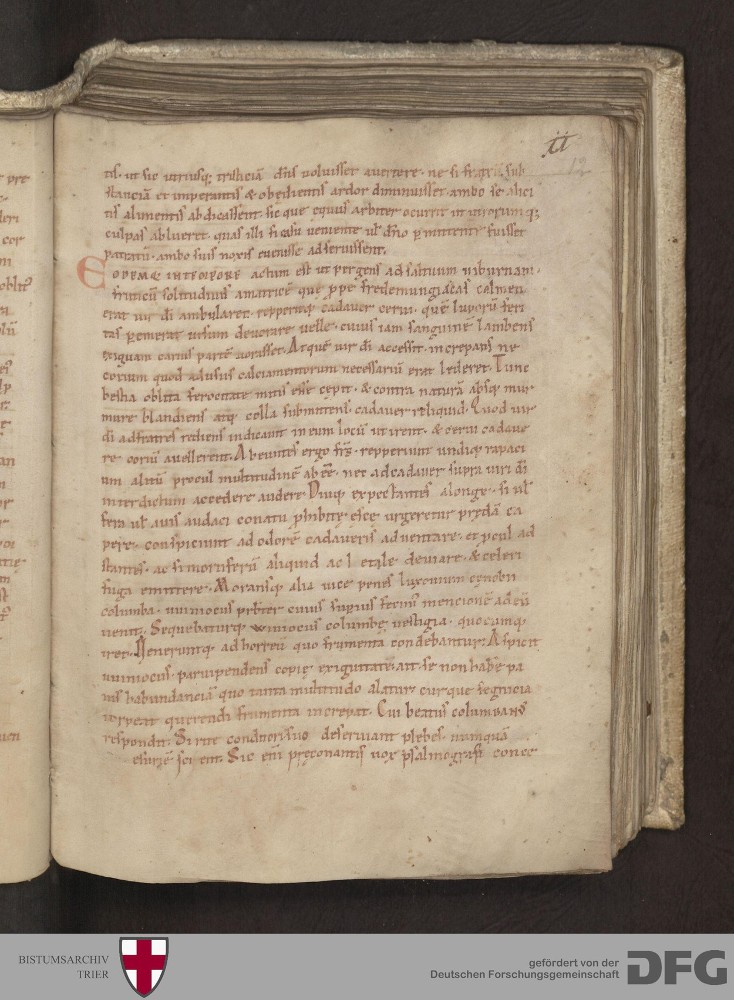 11
12
tis. ut sic utriusq; tristiciā dn̄s voluisset avertere. ne si frag sub
stanciā et imperantis & obędientis ardor diminuisset. ambo se alici
tis alimentis abdicassent. sic que equus arbiter ocurrit ut utrorumq;
culpas ablueret. quas illi si casu veniente ul̄ dn̄o ꝑmittente fuisset
patratū. ambo suis noxis evenisse adseruissent.
EODEMQ; INTROITORE actum est ut pergens ad saltuum niburnam.
fruticū solitudinis amatricē quę ꝓpe fredemungiacas calmen
erat vir di ambularet. repperitq; cadaver cervi. quē luporū feri
tas ꝑemerat ursum devorare velle. cuius iam sanguinē lambens
exiguam carnis partē vorasset. Atque vir di accessit. increpans ne
corium quod ad usus calciamentorum necessariū erat lederet. Tunc
bestia oblita ferocitate mitis esse cępit. & contra naturā absq; mur
mure blandiens atq; colla submittens. cadaver reliquid. Quod vir
di ad fratres rediens indicavit in eum locū ut irent. & cervi cadave
re coriū avellerent. Abeuntes ergo frs̄. reppererunt undiq; rapaci
um alitū procul multitudinē abēē. nec ad cadaver supra viri di
interdictum accedere audere. Diuq; expectantes alonge. si ul̄
fera ul̄ avis audaci conatu ꝓhibite esce urgeretur prędā ca
pere. conspiciunt ad odorē cadaveris adventare. et ꝓcul ad
stantes. ac si mortiferū aliquid ac letale deviare. & celeri
fuga emittere. Moransq; alia vice penes luxovium cęnobii
columba. winiocus prb̄ter cuius suꝑius fecim' mencionē ad eū
venit. Sequebaturq; winiocus columbę vestigia. quocumq;
iret. Veneruntq; ad horreū quo frumenta condebantur. Aspicit
winiocus. parvipendens copię exiguitatē. ait se non habere pa
nis habundanciā quo tanta multitudo alatur. cur que segnicia
torpeat querendi frumenta increpat. Cui beatus columbanus
respondit. Si rite conditori suo deserviant plebes. numquā
esuriē sci ent. Sic eni pręconantis vox psalmografi conec
BISTUMSARCHIV
TRIER
gefördert von der
Deutschen Forschungsgemeinschaft
DFG